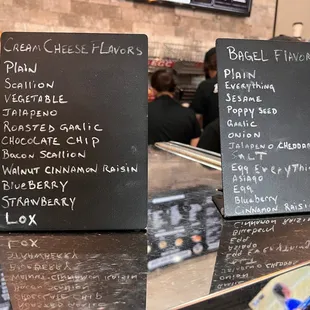 CREAM CHEESE FLAVORS
PLAIN
SCALLION
VEGETABLE
JALAPENO
ROASTED GARLIC
CHOCOLATE CHIP
BACON SCALLION
WALNUT CINNAMON RAISIN
BLUEBERRY
STRAWBERRY
LOX
BAGEL FLAVOR
PLAIN
EVERYTHING
SESAME
POPPY SEED
GARLIC
ONION
JALAPENO CHEDDAR
SALT
EGG EVERYTHIN
ASIAGO
EGG
BLUEBERRY
CINNAMON RAISIN